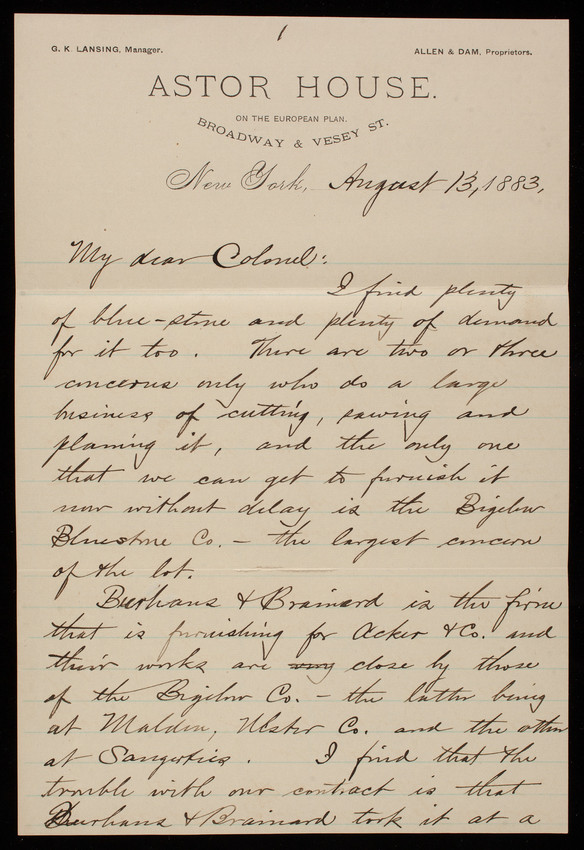 1
G. K. LANSING, Manager. ALLEN & DAM, Proprietors.
ASTOR HOUSE.
ON THE EUROPEAN PLAN.
BROADWAY & VESEY ST.
New York, August 13, 1883,
My dear Colonel:
I find plenty
of blue-stone and plenty of demand
for it too. There are two or three
concerns only who do a large
business of cutting, sawing and
planing it, and the only one
that we can get to furnish it
now without delay is the Bigelow
Bluestone Co. – the largest concern
of the lot.
Burhans & Brainard is the firm
that is furnishing for Acker & Co. and
their works are very close by those
of the Bigelow Co. – the latter being
at Malden, Ulster Co. and the other
at Saugerties. I find that the
trouble with our contract is that
Burhans & Brainard took it at a